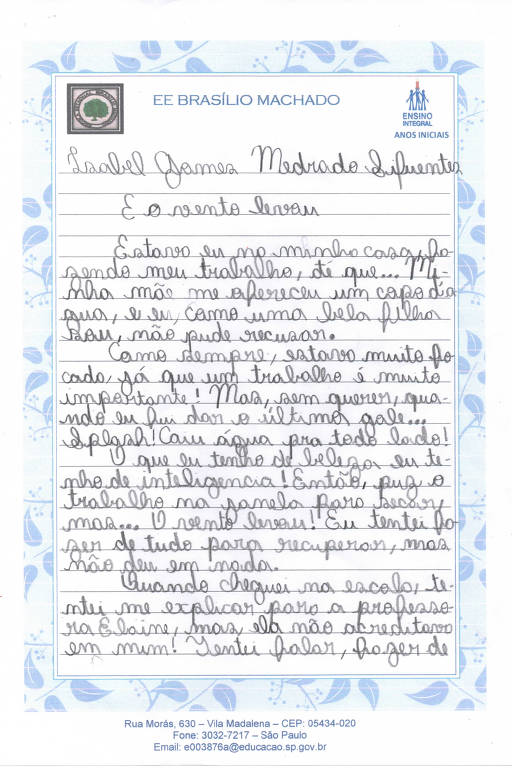 EE BRASÍLIO MACHADO
ENSINO
INTEGRAL
ANOS INICIAIS
Isabel Gomes Medrado Sifuentes
E o vento levou
Estava eu na minha casa, fa-
zendo meu trabalho, té que... Mi-
nha mãe me ofereceu um copo d'a
gua, e eu, como uma bela filha
sou, não pude recusar.
Como sempre, estava muito fo
cada, já que um trabalho é muito
importante! Mas, sem querer, qua-
ndo eu fui dar o último gole...
Splash! Caiu água pra todo lado!
O que eu tenho de beleza eu te-
nho de inteligencia! Então, puz o
trabalho na janela para secar,
mas... O vento levou! Eu tentei fa
zer de tudo para recuperar, mas
não deu em nada.
Quando cheguei na escola, te-
ntei me explicar para a professo-
ra Elaine, mas ela não acreditava
em mim! Tentei falar, fazer de
Rua Morás, 630 – Vila Madalena – CEP: 05434-020
Fone: 3032-7217 – São Paulo
Email: e003876a@educacao.sp.gov.br